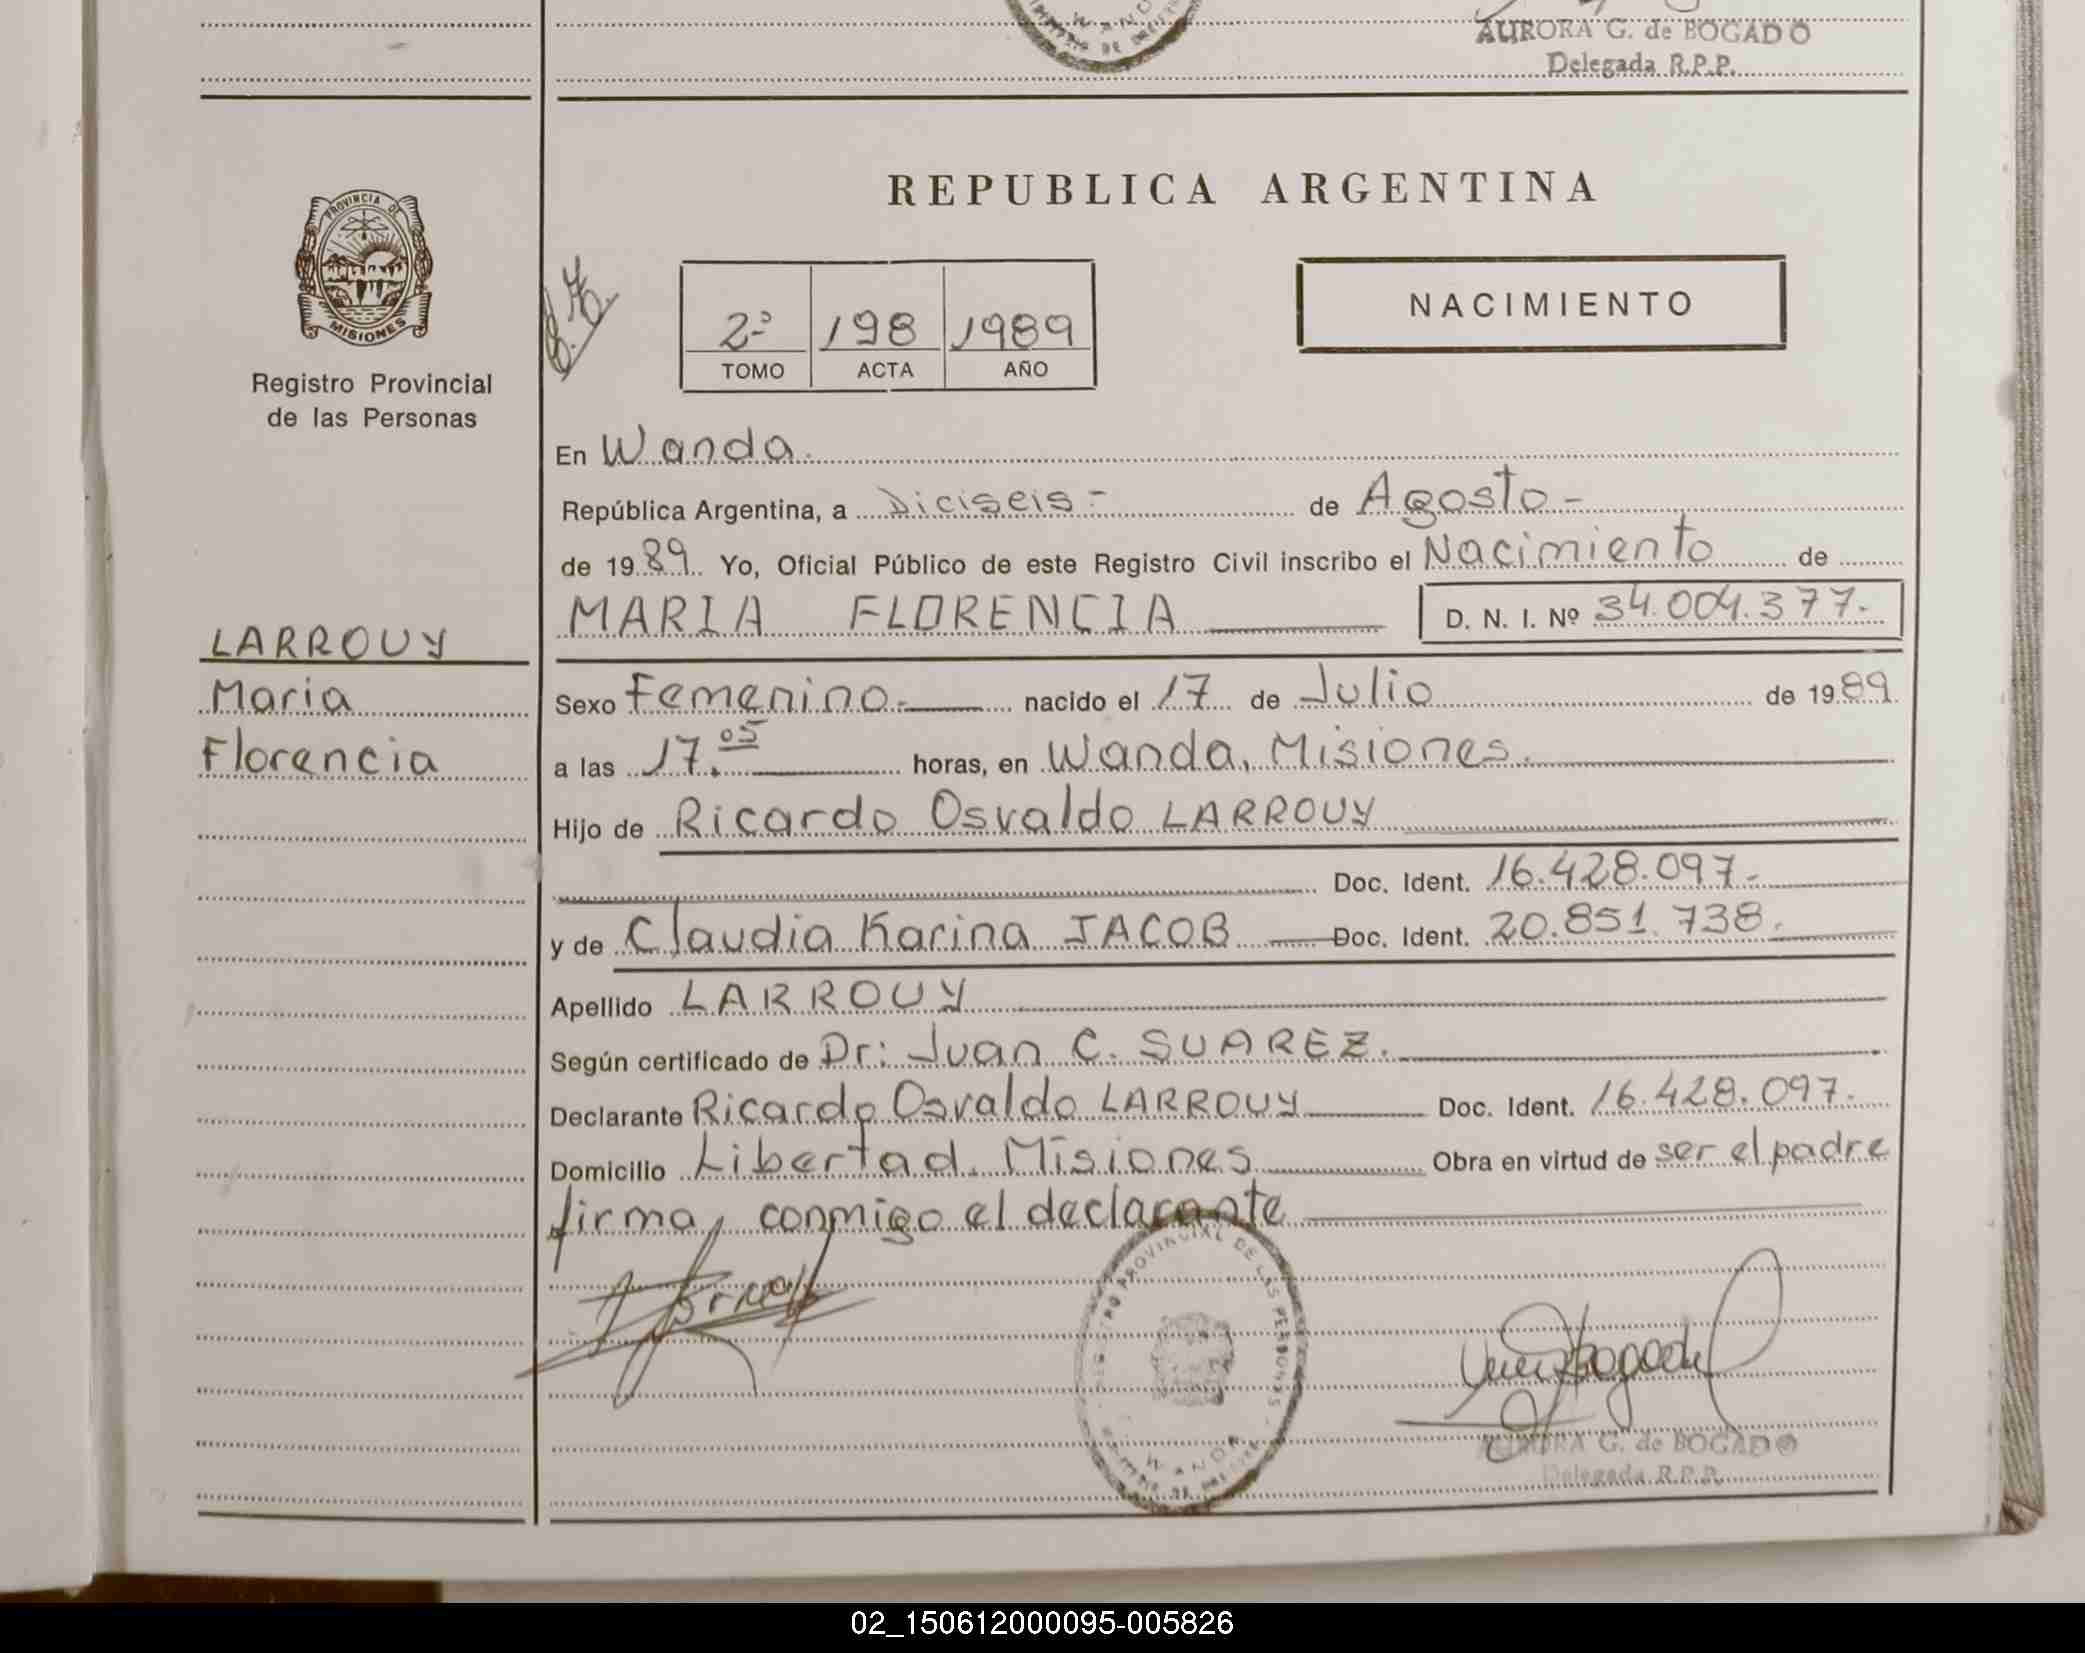 WANDA
AURORA G. de BOGADO
Delegada R.P.P.
PROVINCIA DE
MISIONES
Registro Provincial
de las Personas
REPUBLICA ARGENTINA
2º 198 1989
TOMO ACTA AÑO
NACIMIENTO
En Wanda.
República Argentina, a Diciseis - de Agosto -
de 1989 Yo, Oficial Público de este Registro Civil inscribo el Nacimiento de
MARIA FLORENCIA D. N. I. Nº 34.004.377.
LARROUY
Maria
Florencia
Sexo Femenino.- nacido el 17 de Julio de 1989
a las 17.05 horas, en Wanda, Misiones.
Hijo de Ricardo Osvaldo LARROUY
Doc. Ident. 16.428.097.-
y de Claudia Karina JACOB Doc. Ident. 20.851.738.
Apellido LARROUY
Según certificado de Dr: Juan C. SUAREZ.
Declarante Ricardo Osvaldo LARROUY Doc. Ident. 16.428.097.
Domicilio Libertad. Misiones Obra en virtud de ser el padre
firma, conmigo el declarante
REGISTRO PROVINCIAL DE LAS PERSONAS
WANDA
AURORA G. de BOGADO
Delegada R.P.P.
02_150612000095-005826